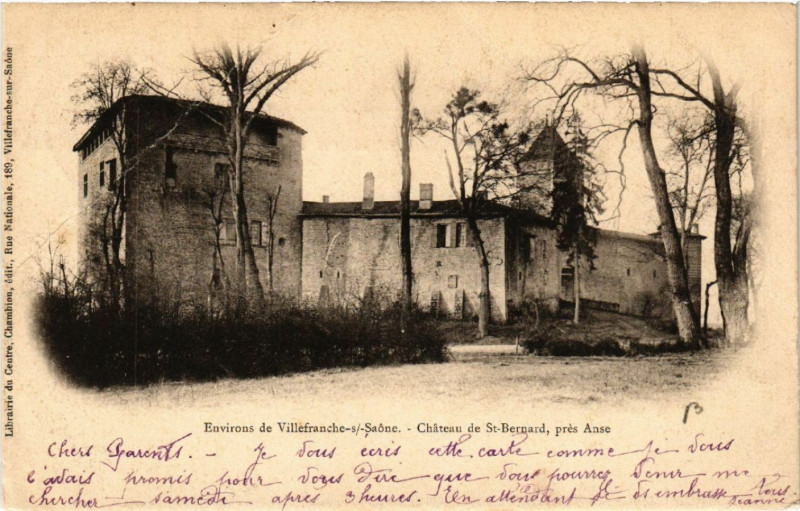 Librairie du Centre, Chambion, édit., Rue Nationale, 189, Villefranche-sur-Saône
Environs de Villefranche-s/-Saône. - Château de St-Bernard, près Anse
Chers Parents. - Je vous écris cette carte comme je vous
l'avais promis pour vous dire que vous pourrez venir me
chercher samedi après 3 heures. En attendant je vs embrasse tous.
Jeanne